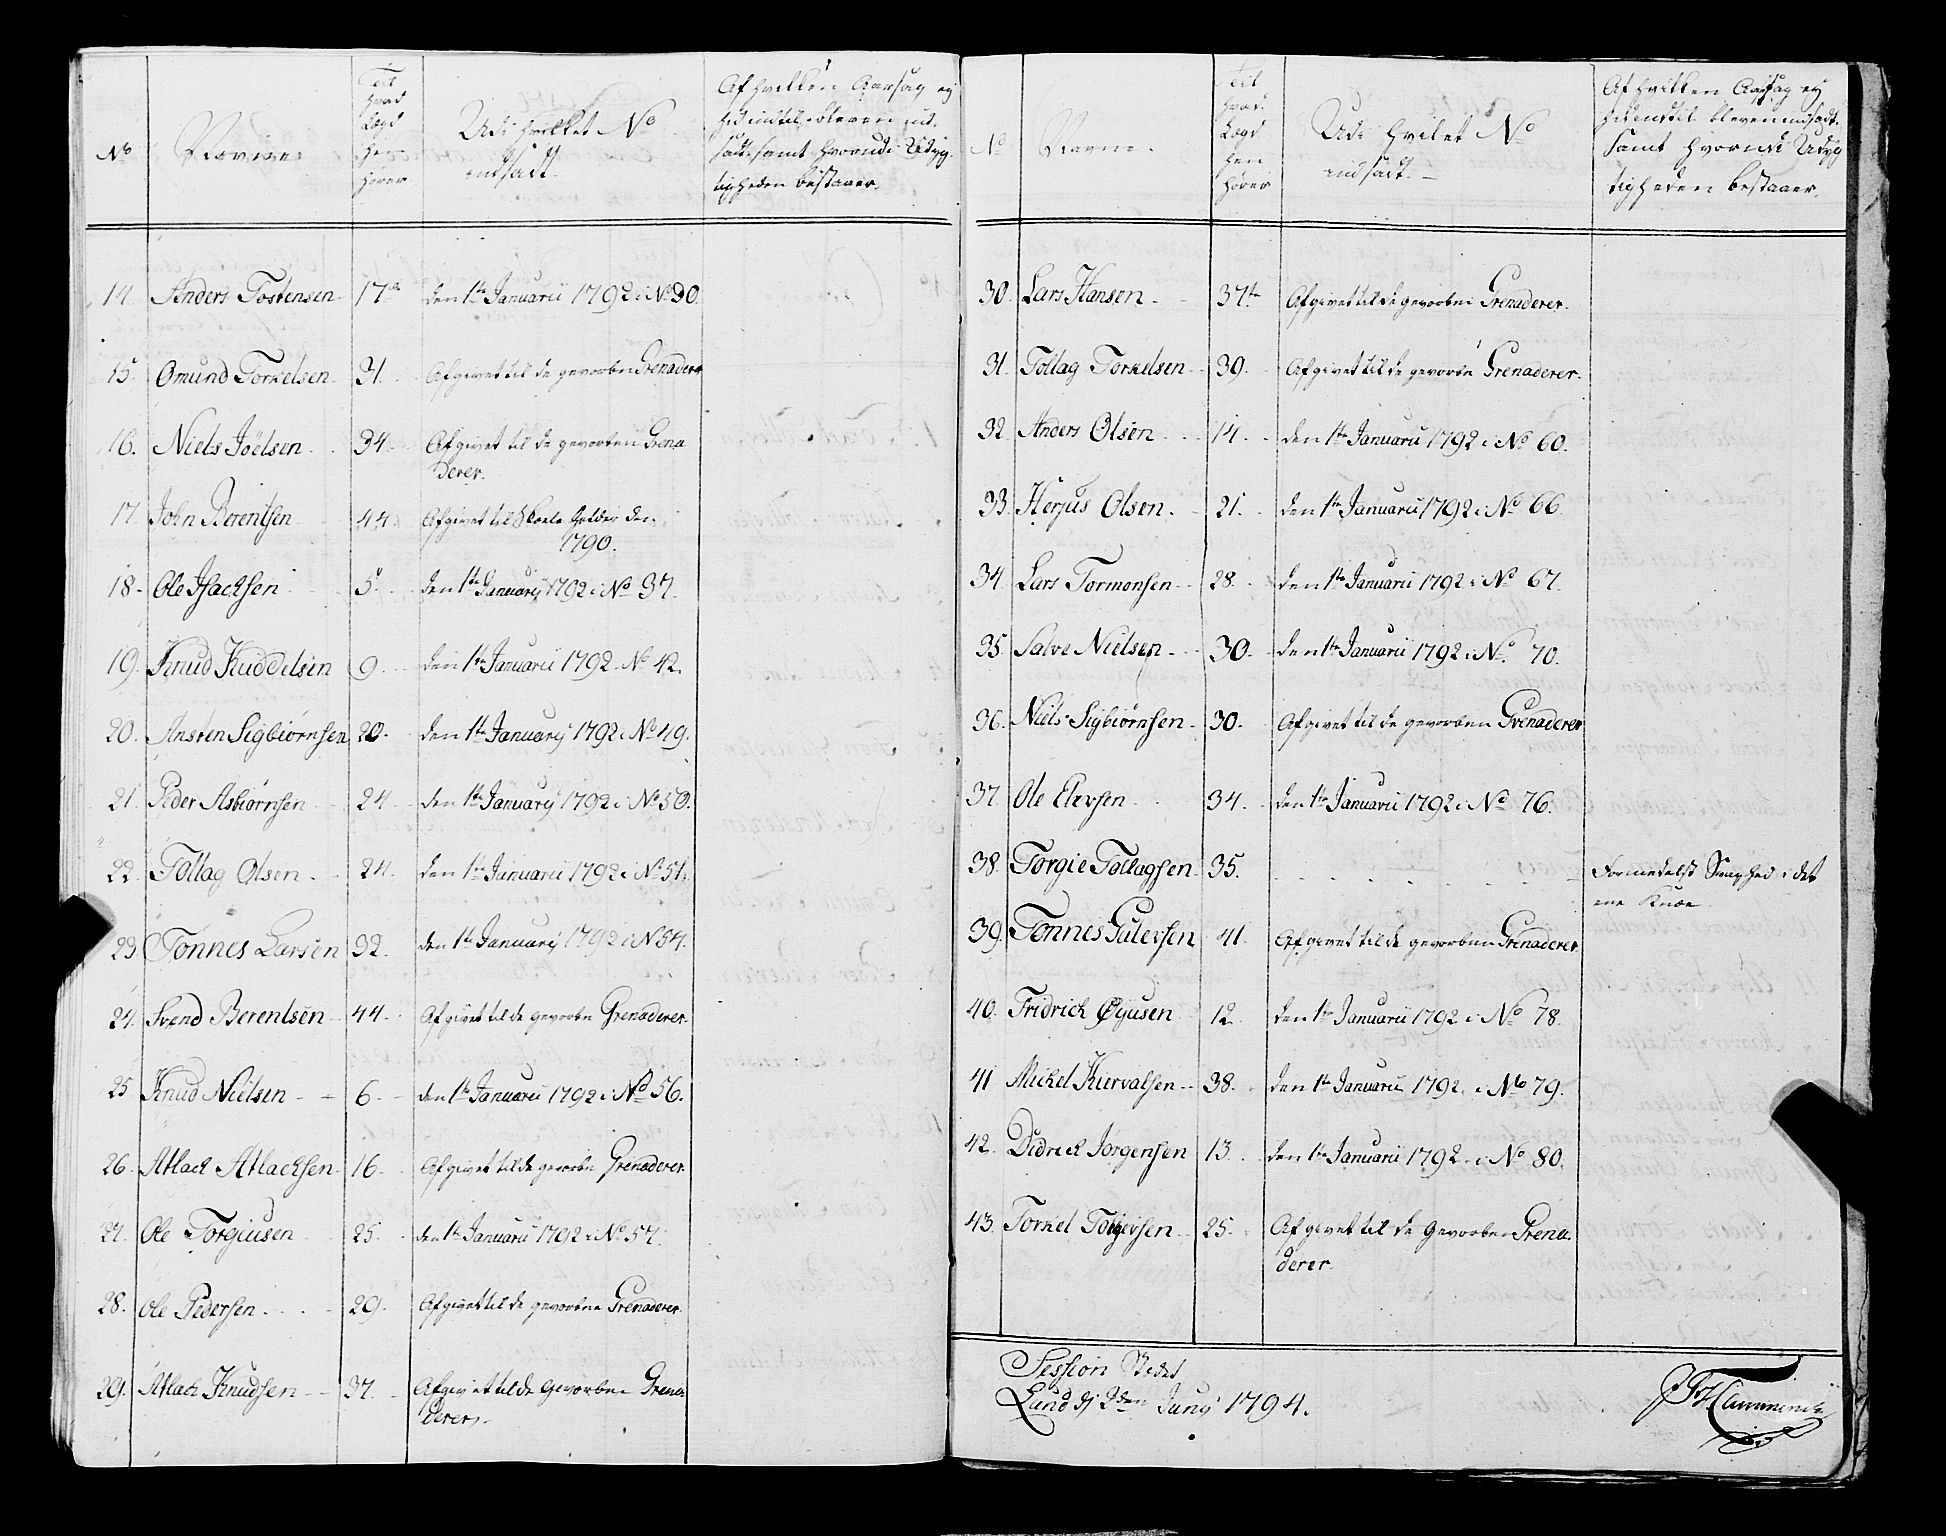 No
Navne
Til
hvad
Lægd
hen
hører
Udi hvilket No
indsadt.
Af hvilken Aarsag ey
hidindtil bleven ind,
sadt, samt hvorudi Udyg,
tigheden bestaaer.
14. Anders Tostensen 17 den 1te Januarii 1792 i No 30.
15. Omund Torkelsen 31. Afgivet til de gevorbne Grenaderer
16. Niels Joelsen 34. Afgivet til de gevorben Grena
derer.
17. John Berentsen 44. Afgivet til
1790.
18. Ole Isachsen 5. den 1te Januarij 1792 i No 37.
19. Knud Kuddelsen 9. den 1te Januarii 1792. No 42.
20. Ansten Sigbiørnsen 20. den 1te Januarij 1792 i No 49.
21. Peder Asbiørnsen 24. den 1te Januarij 1792 i No 50.
22. Tollag Olsen. 24. den 1te Januarii 1792 i No 51.
23. Tønnes Larsen 32. den 1te Januarij 1792 i No 54.
24. Svend Berentsen 44. Afgivet til de gevorbne Grenaderer.
25. Knud Nielsen 6. den 1te Januarii 1792 i No 56.
26. Atlach Atlachsen 16. Afgivet til de gevorbne Grenaderer.
27. Ole Torgiusen 25. den 1te Januarii 1792 i No 57.
28. Ole Pedersen 29. Afgivet til de gevorbne Grenaderer.
29. Atlach Knudsen 37. Afgivet til de Gevorbne Grena
derer.
No
Navne.
Til
hvad
Lægd
hen
hører
Udi hvilet No
indsadt.
Af hvilken Aarsag ey
hidindtil bleven indsadt.
samt hvorudi Udyg
tigheden bestaaer.
30. Lars Hansen 37 Afgivet til de gevorbne Grenaderer.
31. Tollag Torkelsen 39. Afgivet til de gevorbne Grenaderer.
32. Anders Olsen 14. den 1te Januarii 1792 i No 60.
33. Herjus Olsen. 21. den 1te Januarii 1792 i No 66.
34. Lars Tormonsen 28. den 1te Januarii 1792 i No 67.
35. Salve Nielsen 30. den 1te Januarii 1792 i No. 70.
36. Niels Sigbiørnsen 30. Afgivet til de gevorben Grenaderer
37. Ole Elevsen 34. den 1te Januarii 1792 i No 76.
38. Torgie Tollagsen 35. Formedelst Svaghed i det
ene Knæe.
39. Tønnes Gulevsen 41. Afgivet til de gevorben Grenaderer
40. Fridrich 12. den 1te Januarii 1792 i No 78.
41 Michel Kiervalsen 38. den 1te Januarii 1792. i No 79.
42. Didrich Jørgensen 13. den 1te Januarii 1792. i No 80.
43. Torkel 25. Afgivet til de Gevorbne Grena,
derer.
Session Stedet
Lund dj 2den Junij 1794.